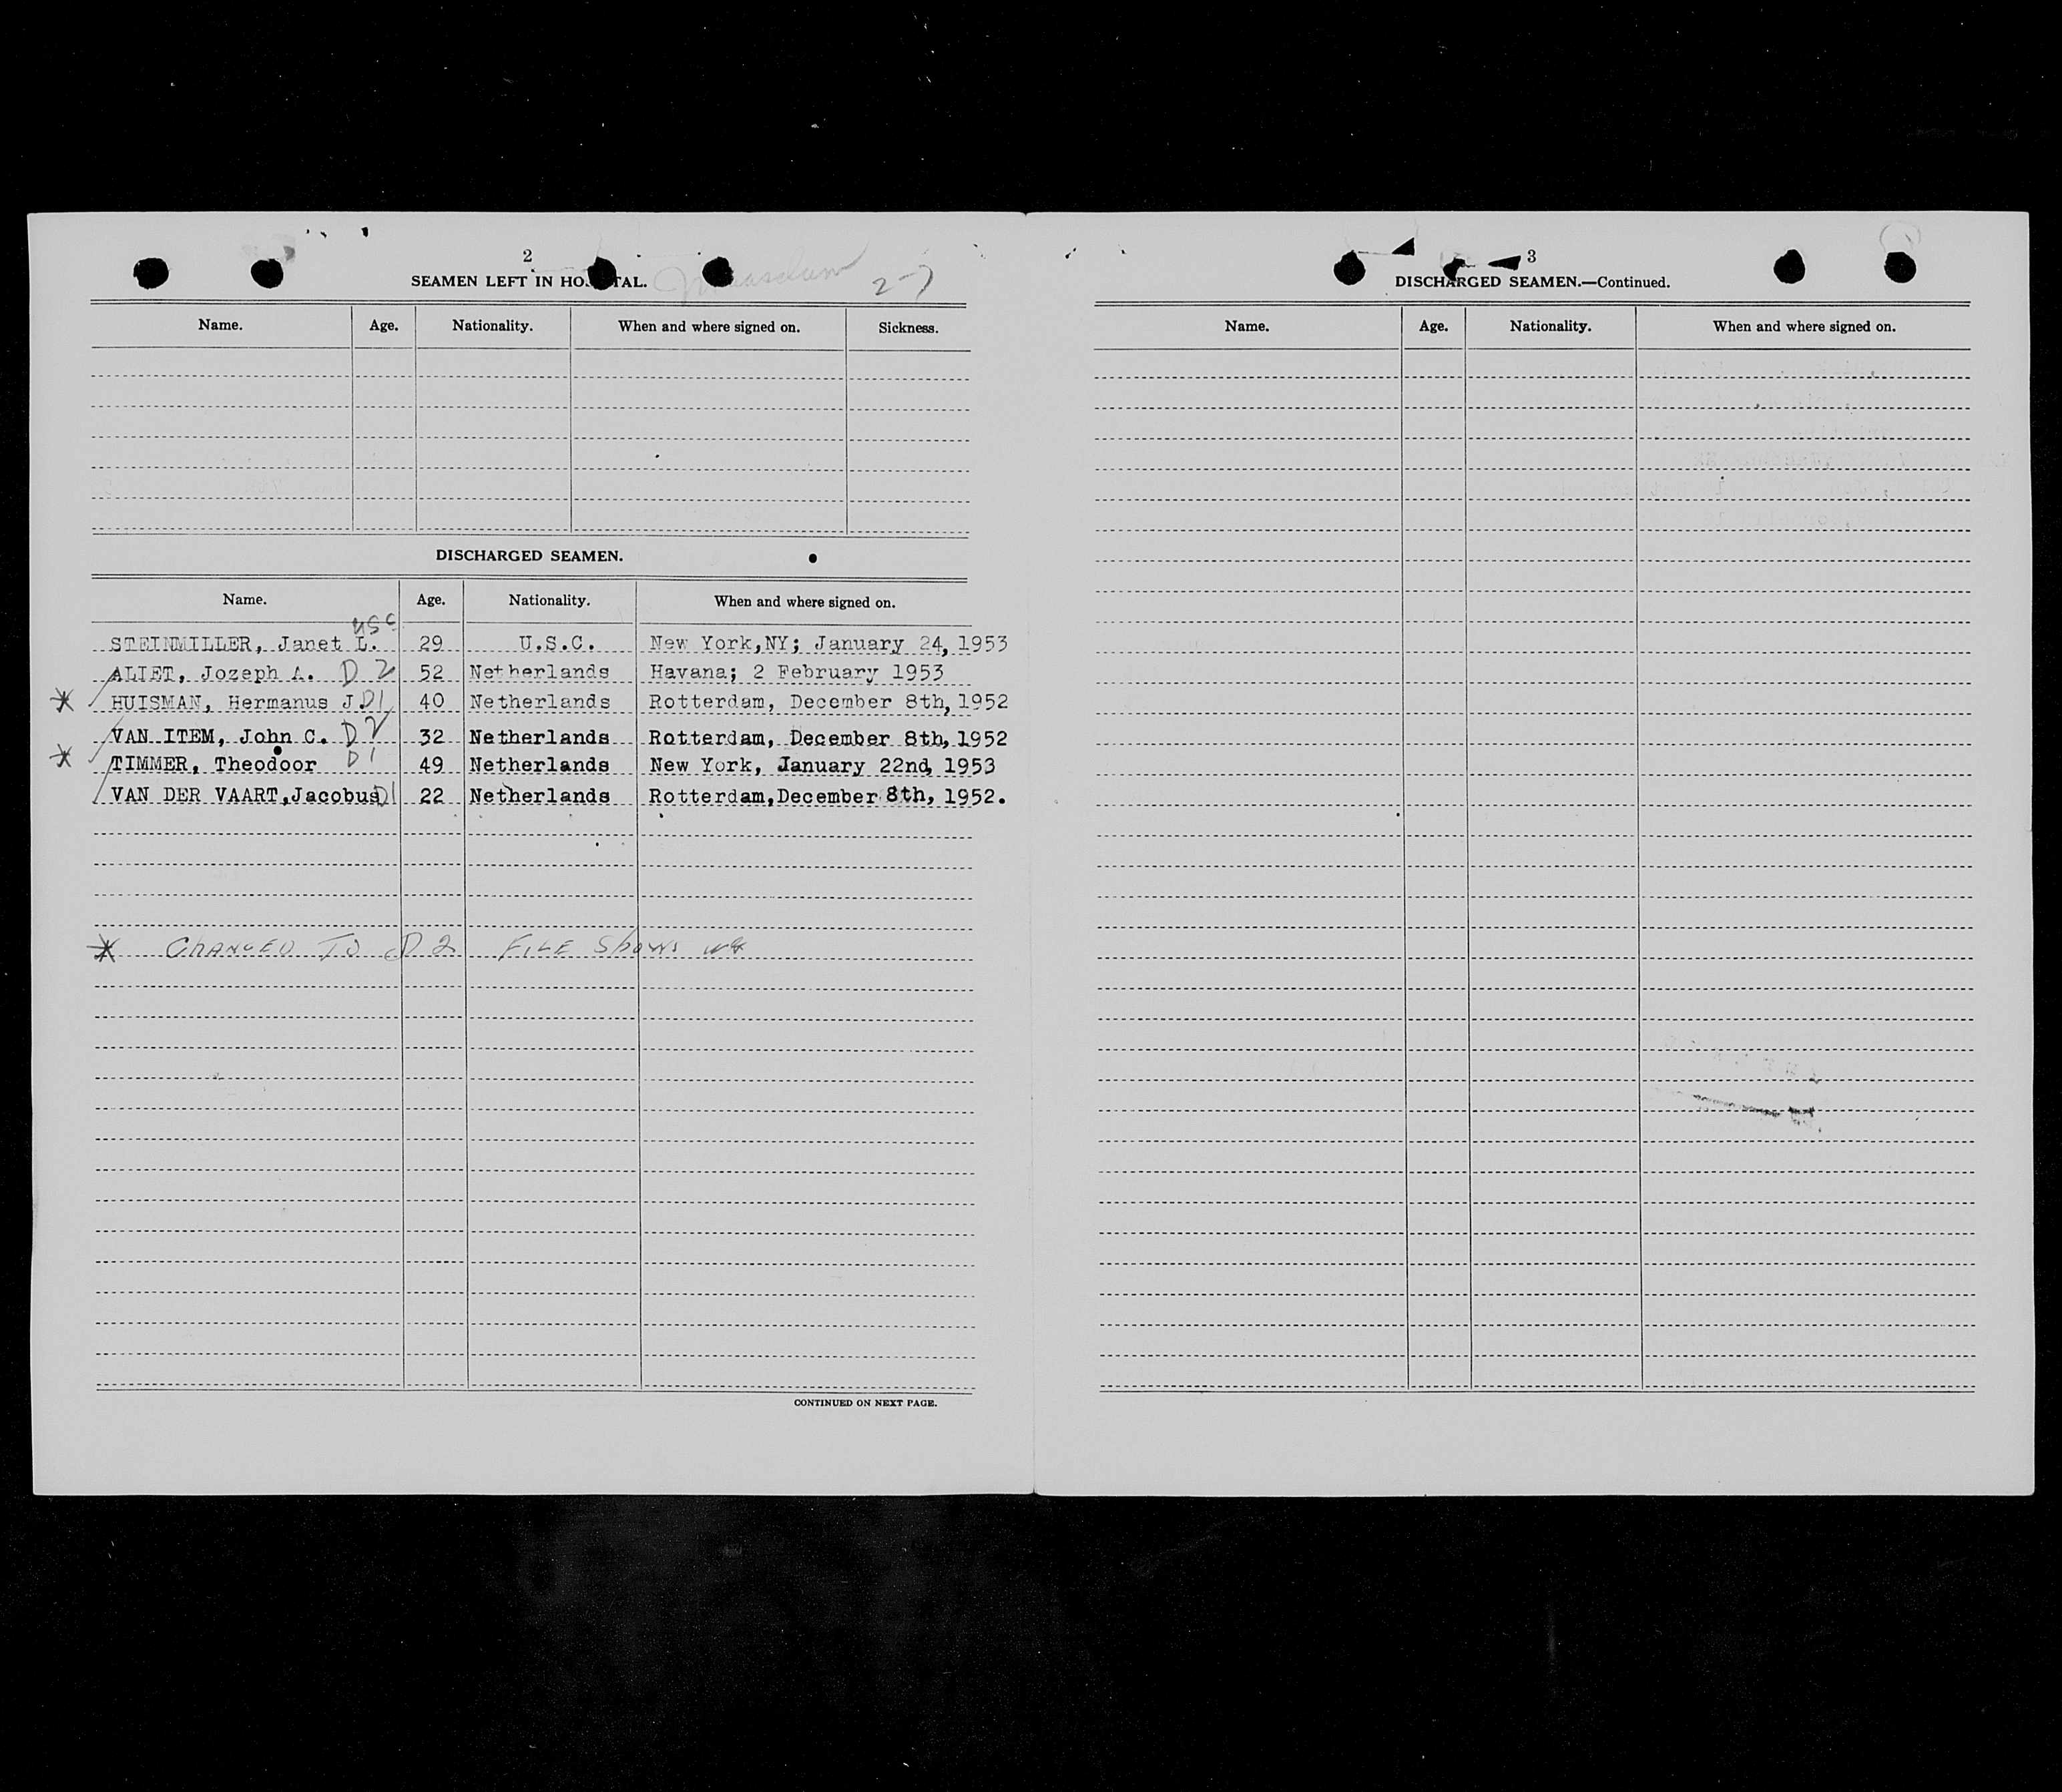 2
SEAMEN LEFT IN HOSPITAL.
2-7
Name. Age. Nationality. When and where signed on. Sickness.
DISCHARGED SEAMEN.
Name. Age. Nationality. When and where signed on.
USC
STEINMILLER, Janet L. 29 U.S.C. New York,NY; January 24, 1953
ALIET, Jozeph A. D 2 52 Netherlands Havana; 2 February 1953
* HUISMAN, Hermanus J. D1 40 Netherlands Rotterdam, December 8th, 1952
VAN ITEM, John C. D2 32 Netherlands Rotterdam, December 8th, 1952
* TIMMER, Theodoor D1 49 Netherlands New York, January 22nd, 1953
VAN DER VAART, Jacobus D1 22 Netherlands Rotterdam, December 8th, 1952.
* CHANGED TO D2 FILE Shows
CONTINUED ON NEXT PAGE.
3
DISCHARGED SEAMEN.—Continued.
Name. Age. Nationality. When and where signed on.